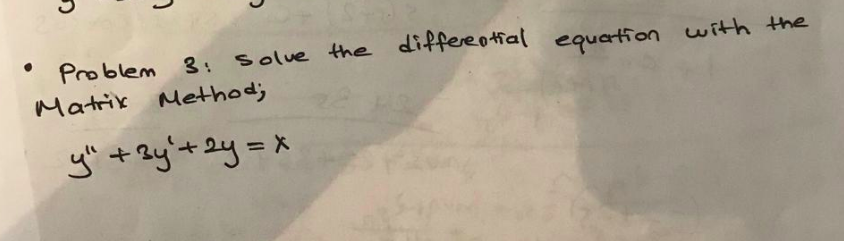 • Problem 3: Solve the differential equation with the
Matrix Method;
y'' + 3y' + 2y = x